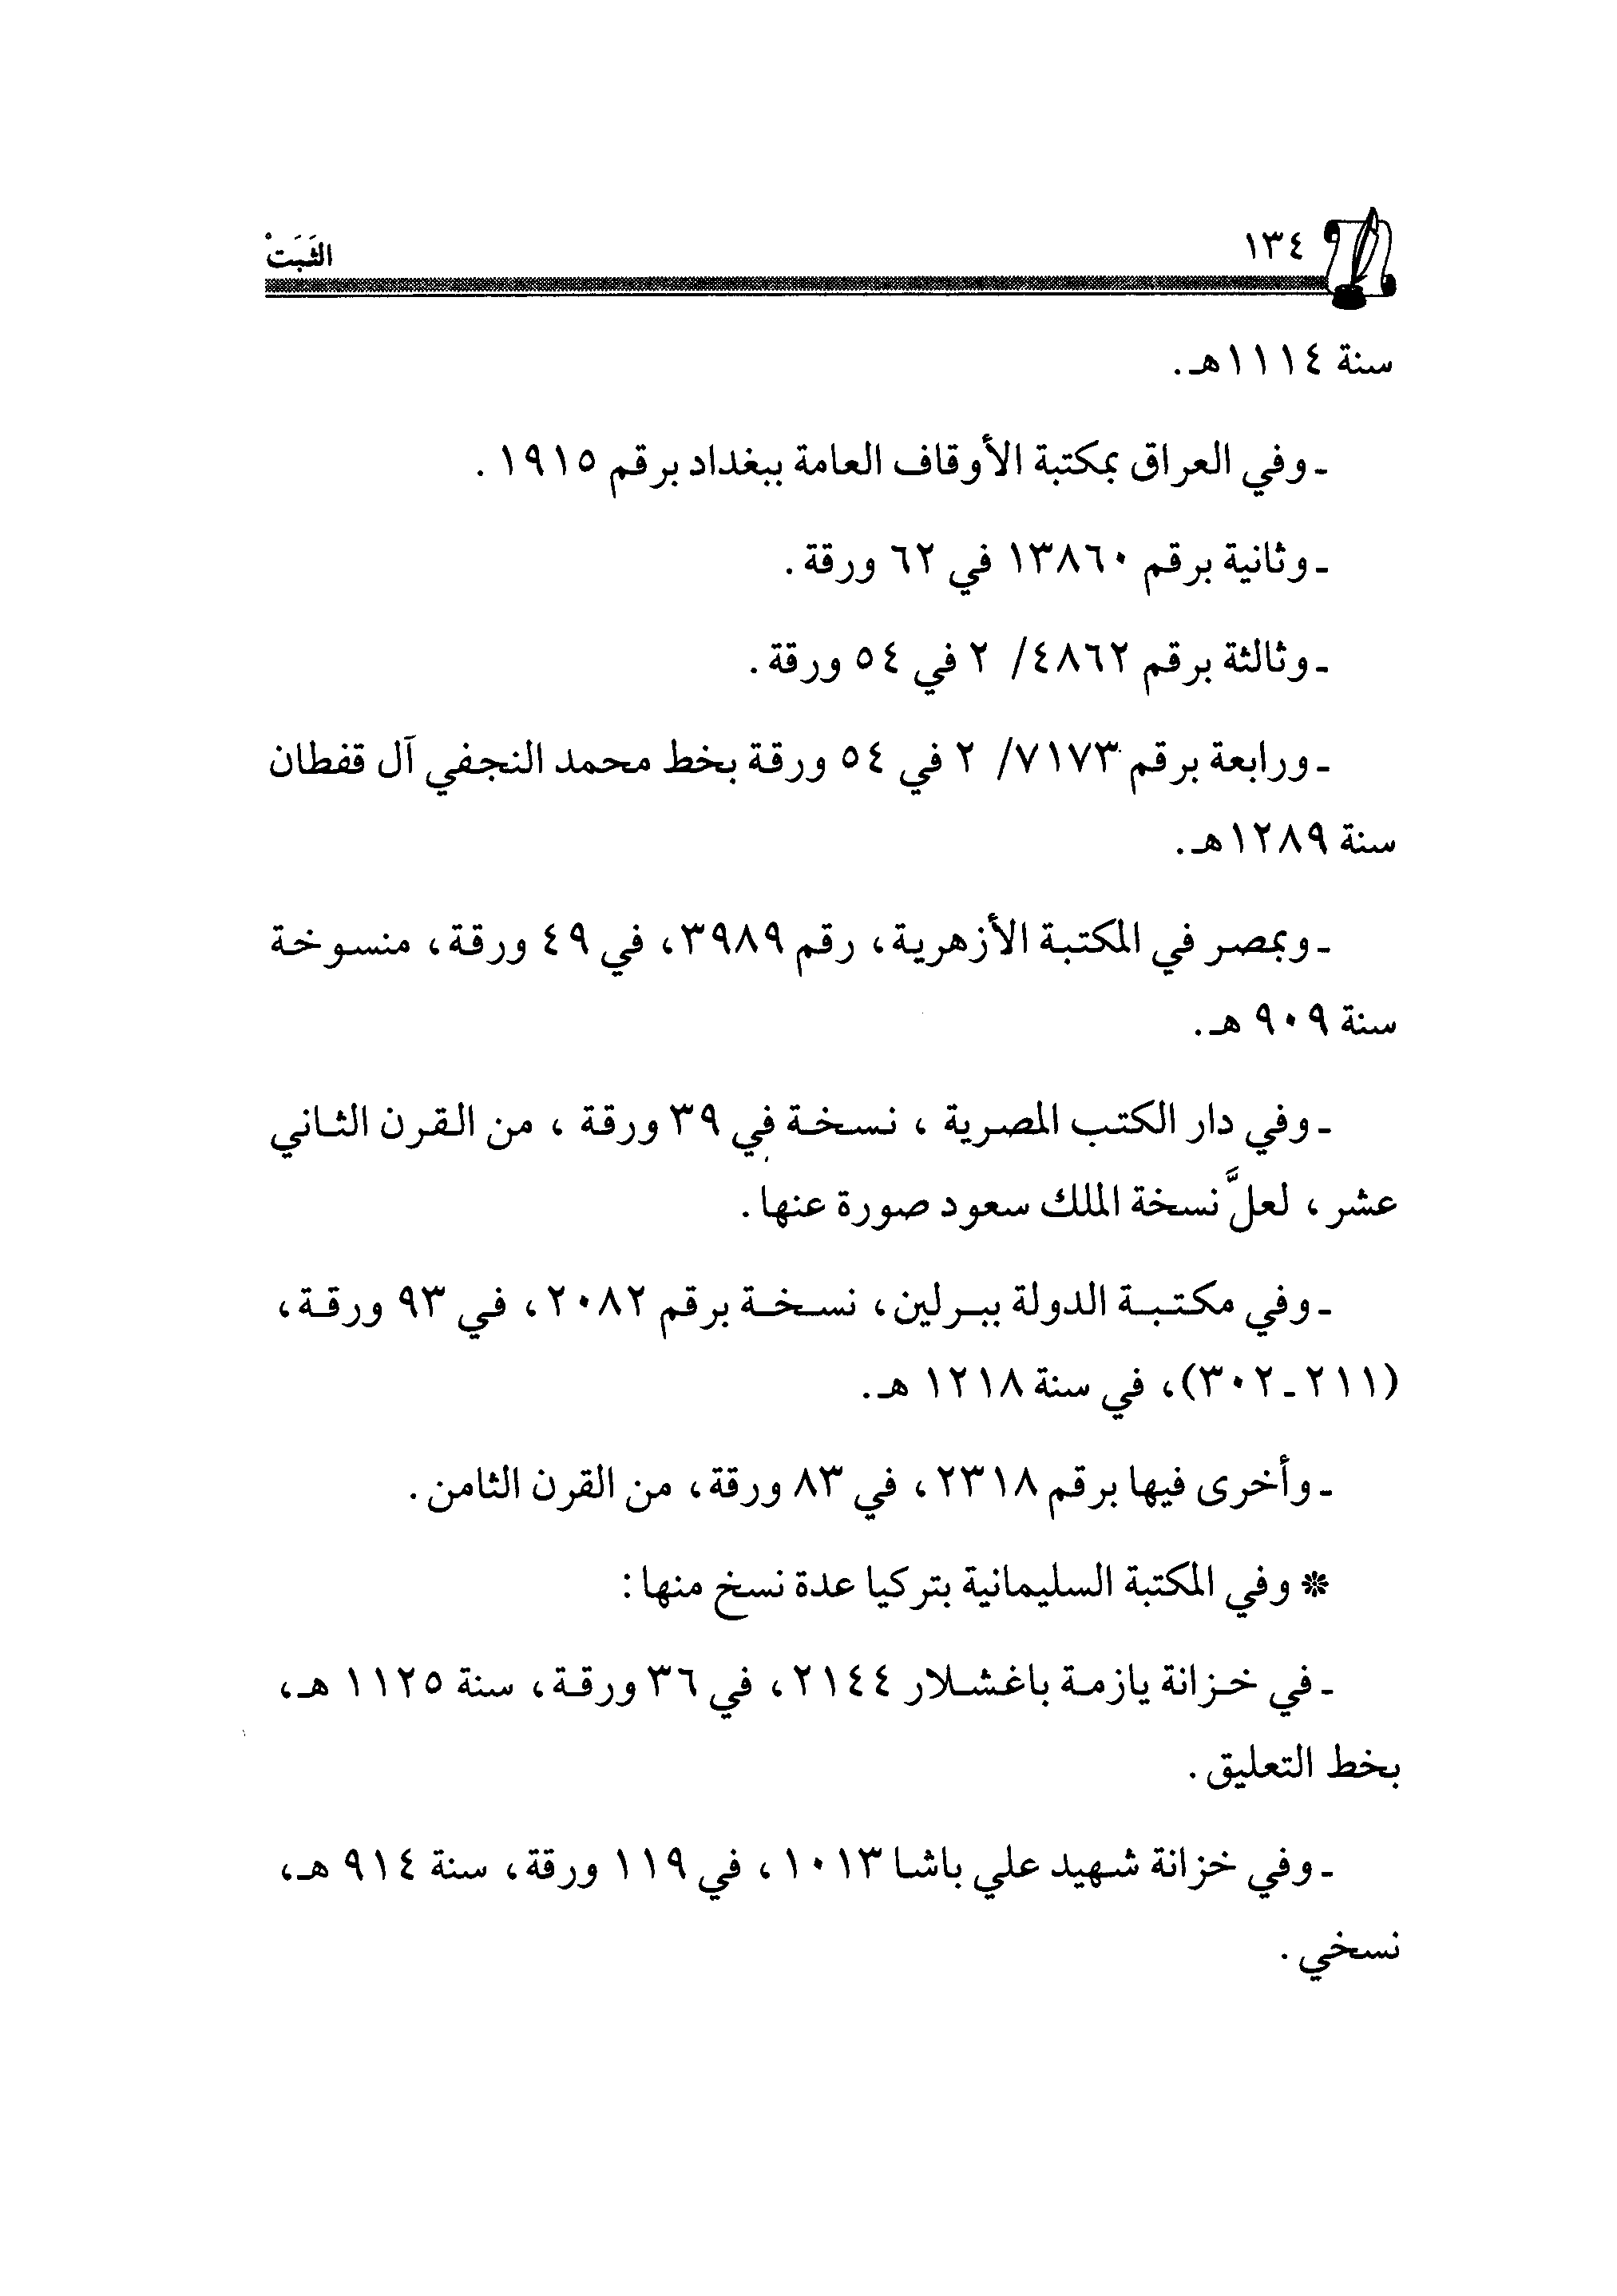 ١٣٤
الثَبَتْ
سنة ١١١٤هـ.
ـ وفي العراق بمكتبة الأوقاف العامة ببغداد برقم ١٩١٥ .
ـ وثانية برقم ١٣٨٦٠ في ٦٢ ورقة.
ـ وثالثة برقم ٤٨٦٢/ ٢ في ٥٤ ورقة.
ـ ورابعة برقم ٧١٧٣/ ٢ في ٥٤ ورقة بخط محمد النجفي آل قفطان
سنة ١٢٨٩هـ.
ـ وبمصر في المكتبة الأزهرية، رقم ٣٩٨٩، في ٤٩ ورقة، منسوخة
سنة ٩٠٩ هـ.
ـ وفي دار الكتب المصرية ، نسخة في ٣٩ ورقة ، من القرن الثاني
عشر، لعلَّ نسخة الملك سعود صورة عنها.
ـ وفي مكتبة الدولة ببرلين، نسخة برقم ٢٠٨٢، في ٩٣ ورقة،
(٢١١ـ٣٠٢)، في سنة ١٢١٨ هـ.
ـ وأخرى فيها برقم ٢٣١٨، في ٨٣ ورقة، من القرن الثامن.
* وفي المكتبة السليمانية بتركيا عدة نسخ منها:
ـ في خزانة يازمة باغشلار ٢١٤٤، في ٣٦ ورقة، سنة ١١٢٥ هـ،
بخط التعليق.
ـ وفي خزانة شهيد علي باشا ١٠١٣، في ١١٩ ورقة، سنة ٩١٤ هـ،
نسخي.